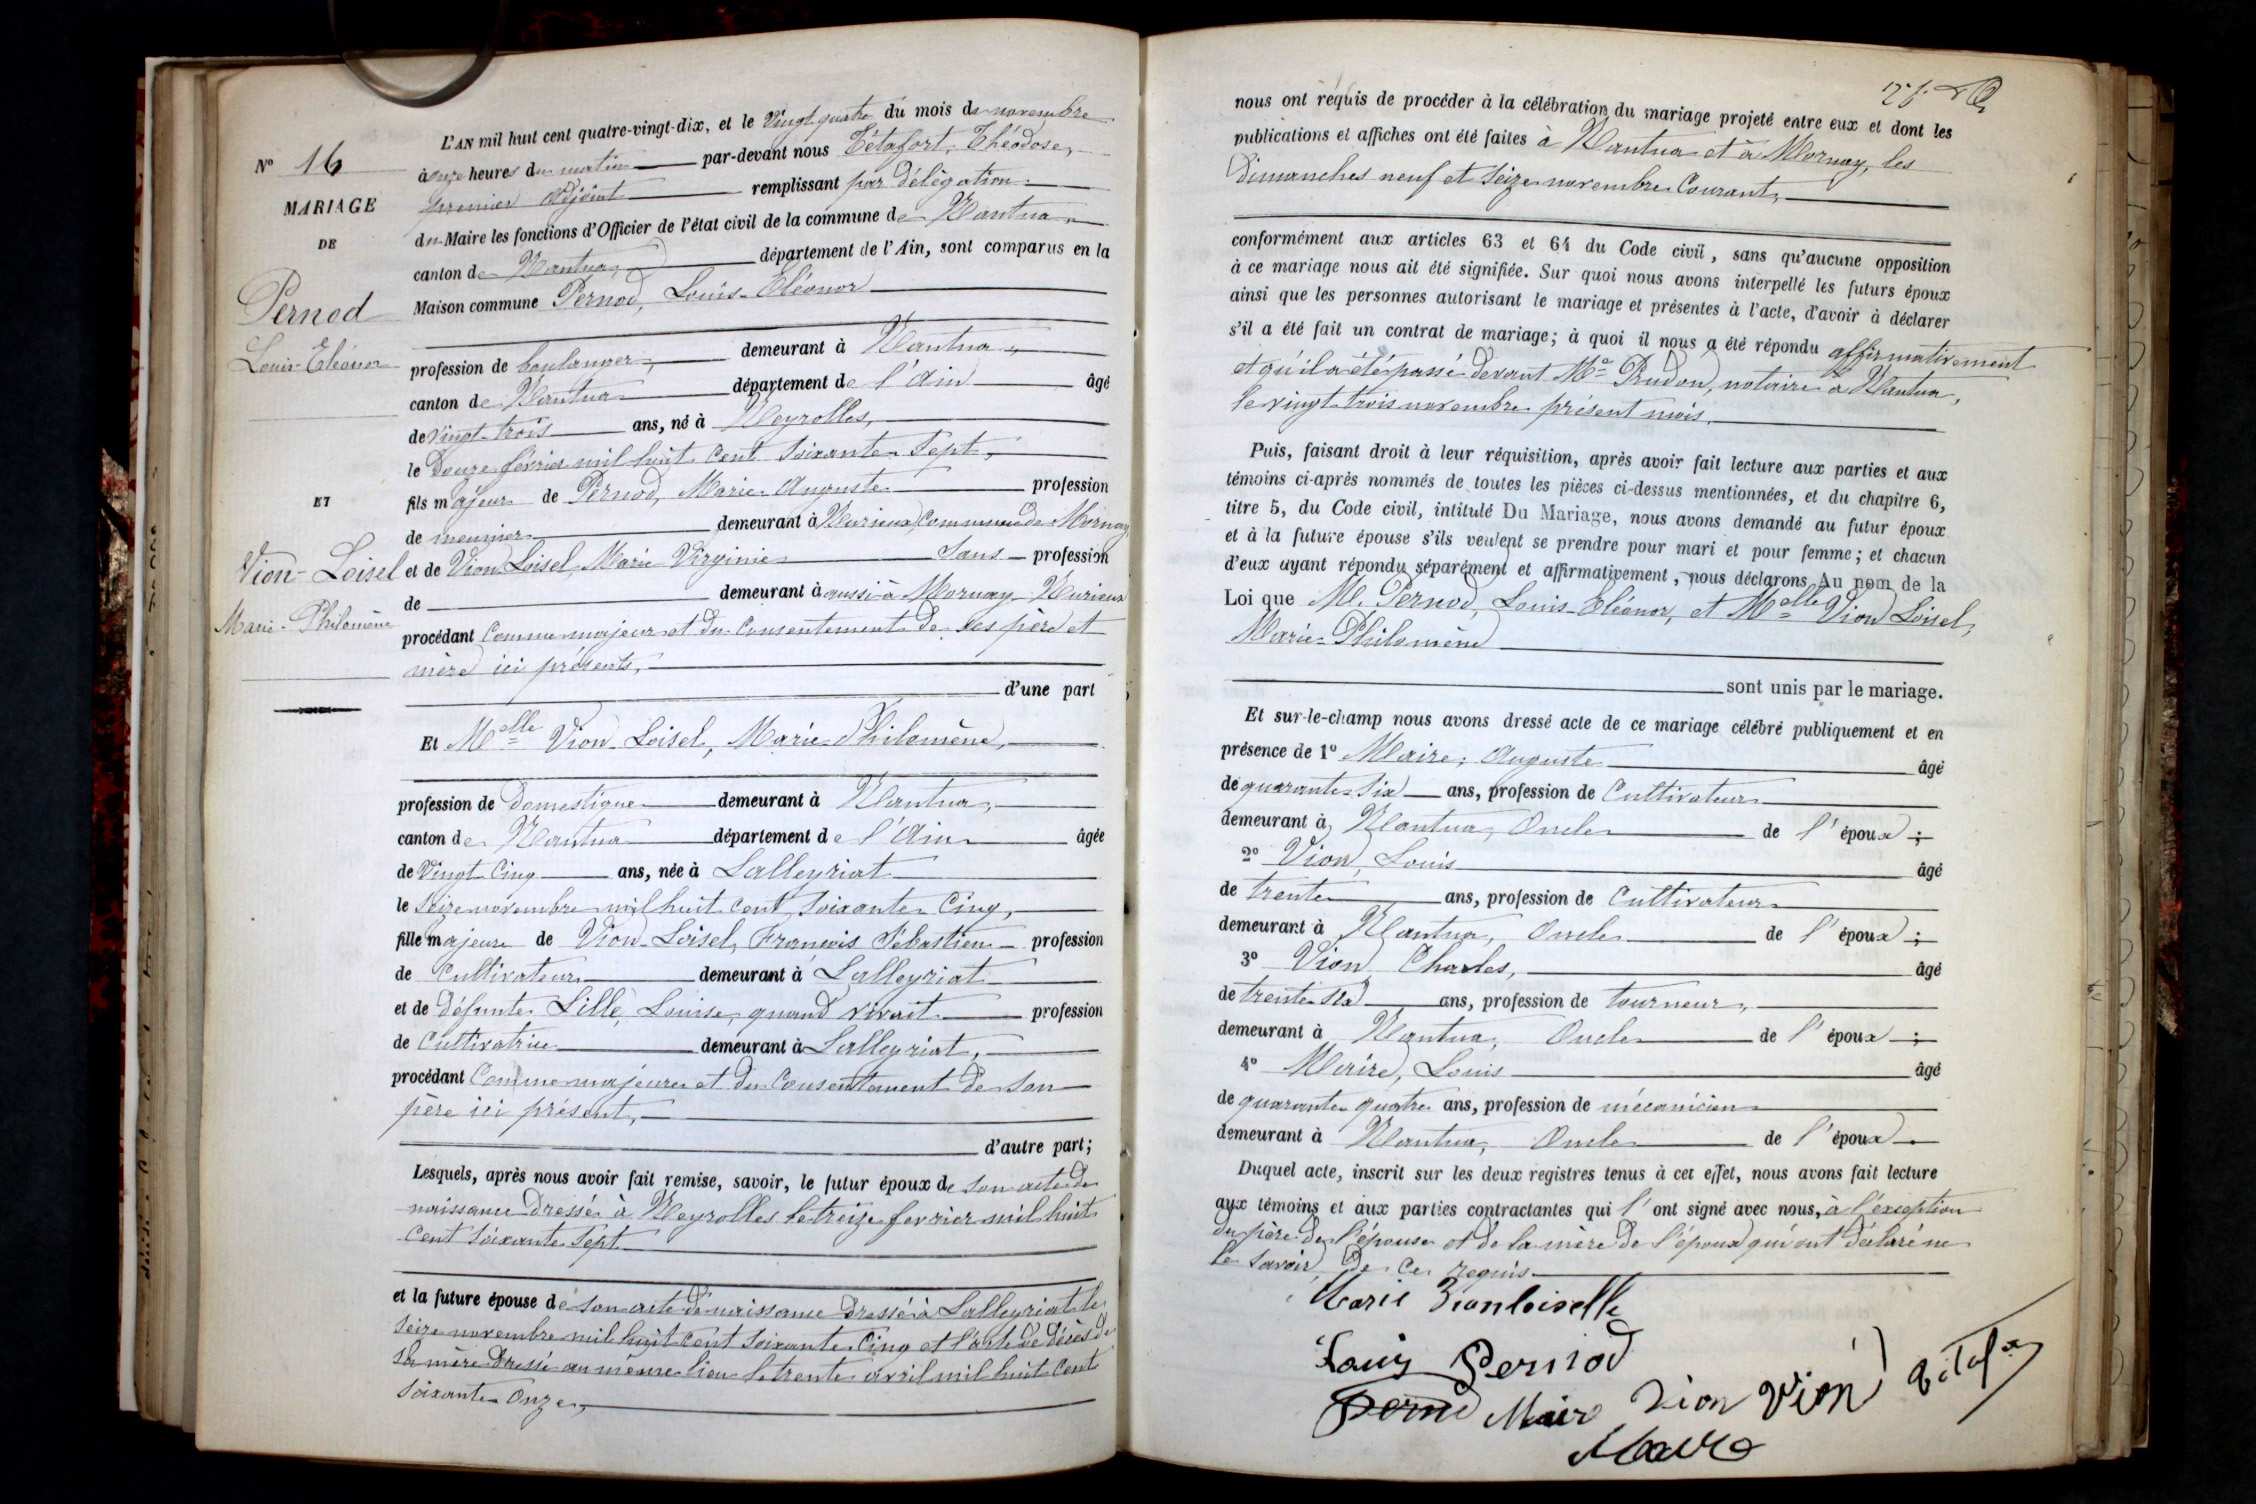 N° 16
MARIAGE
DE
Pernod
Louis-Eléonor
ET
Vion-Loisel
Marie-Philomène
L'AN mil huit cent quatre-vingt-dix, et le vingt quatre du mois de novembre
à onze heures du matin par-devant nous Tétafort, Théodose,
premier adjoint remplissant par délégation
du Maire les fonctions d'Officier de l'état civil de la commune de Nantua,
canton de Nantua, département de l'Ain, sont comparus en la
Maison commune Pernod, Louis-Eléonor
profession de boulanger, demeurant à Nantua,
canton de Nantua département de l'Ain âgé
de vingt-trois ans, né à Neyrolles,
le douze février mil huit cent soixante sept,
fils majeur de Pernod, Marie-Auguste profession
de meunier demeurant à Nurieux, commune de Mornay,
et de Vion-Loisel, Marie Virginie sans profession
de demeurant à aussi à Mornay-Nurieux
procédant comme majeur et du consentement de ses père et
mère ici présents,
d'une part
Et Melle Vion-Loisel, Marie-Philomène,
profession de domestique demeurant à Nantua,
canton de Nantua département de l'Ain âgée
de vingt-cinq ans, née à Lalleyriat
le seize novembre mil huit cent soixante cinq,
fille majeure de Vion-Loisel, François Sébastien profession
de cultivateur demeurant à Lalleyriat
et de défunte Lille, Louise, quand vivait profession
de cultivatrice demeurant à Lalleyriat,
procédant comme majeure et du consentement de son
père ici présent,
d'autre part;
Lesquels, après nous avoir fait remise, savoir, le futur époux de son acte de
naissance dressé à Neyrolles le treize février mil huit
cent soixante sept
et la future épouse de son acte de naissance dressé à Lalleyriat le
seize novembre mil huit cent soixante cinq et l'acte de décès de
sa mère dressé au même lieu le trente avril mil huit cent
soixante onze,
nous ont requis de procéder à la célébration du mariage projeté entre eux et dont les
publications et affiches ont été faites à Nantua et à Mornay, les
dimanches neuf et seize novembre courant,
conformément aux articles 63 et 64 du Code civil, sans qu'aucune opposition
à ce mariage nous ait été signifiée. Sur quoi nous avons interpellé les futurs époux
ainsi que les personnes autorisant le mariage et présentes à l'acte, d'avoir à déclarer
s'il a été fait un contrat de mariage; à quoi il nous a été répondu affirmativement
et qu'il a été passé devant Me Prudon, notaire à Nantua,
le vingt trois novembre présent mois.
Puis, faisant droit à leur réquisition, après avoir fait lecture aux parties et aux
témoins ci-après nommés de toutes les pièces ci-dessus mentionnées, et du chapitre 6,
titre 5, du Code civil, intitulé Du Mariage, nous avons demandé au futur époux
et à la future épouse s'ils veulent se prendre pour mari et pour femme; et chacun
d'eux ayant répondu séparément et affirmativement, nous déclarons Au nom de la
Loi que M. Pernod, Louis-Eléonor, et Melle Vion Loisel,
Marie-Philomène
sont unis par le mariage.
Et sur-le-champ nous avons dressé acte de ce mariage célébré publiquement et en
présence de 1° Maire, Auguste âgé
de quarante-six ans, profession de cultivateur
demeurant à Nantua, oncle de l'époux;
2° Vion, Louis âgé
de trente ans, profession de cultivateur
demeurant à Nantua, oncle de l'époux;
3° Vion Charles, âgé
de trente six ans, profession de tourneur,
demeurant à Nantua, oncle de l'époux;
4° Maire, Louis âgé
de quarante quatre ans, profession de mécanicien
demeurant à Nantua, oncle de l'époux
Duquel acte, inscrit sur les deux registres tenus à cet effet, nous avons fait lecture
aux témoins et aux parties contractantes qui l'ont signé avec nous, à l'exception
du père de l'épouse et de la mère de l'époux qui ont déclaré ne
le savoir de ce requis
Marie Vionloiselle
Louis Pernod
Pernod Maire Vion Vion
Maire